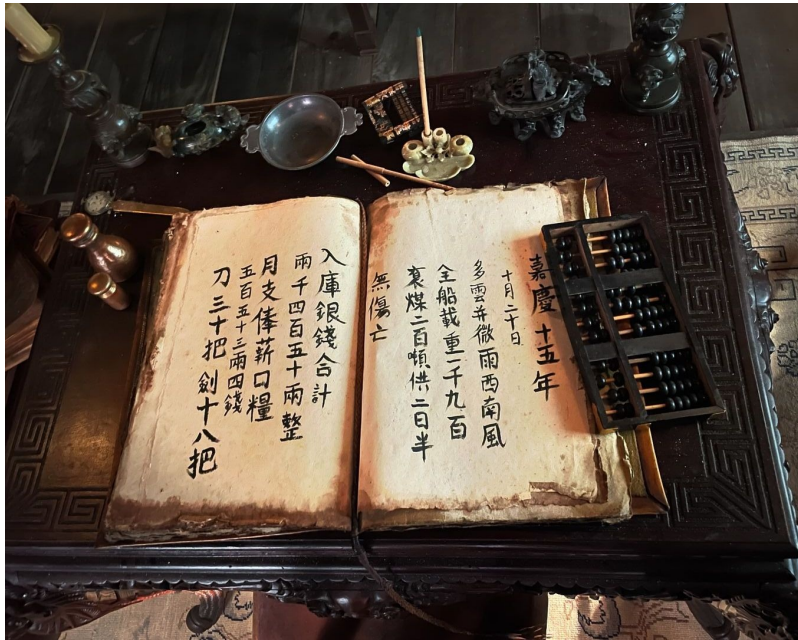 嘉慶十五年
十月二十日
多雲并微雨西南風
全船載重一千九百
裹煤二百噸供二日半
無傷亡
入庫銀錢合計
兩千四百五十兩整
月支俸薪口糧
五百五十三兩四錢
刀三十把劍十八把